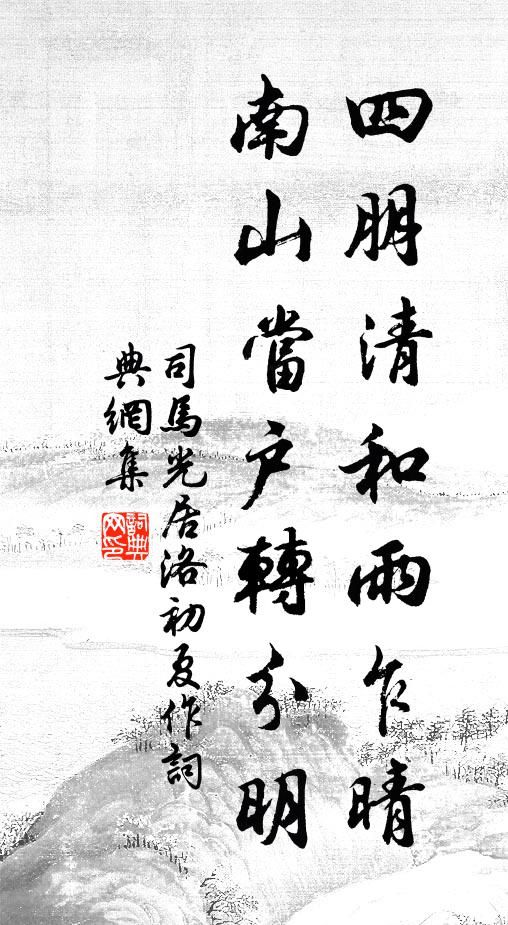 四朋清和雨乍晴
南山當戶轉分明
司馬光居洛初夏作詞
典網集
詞典
网印